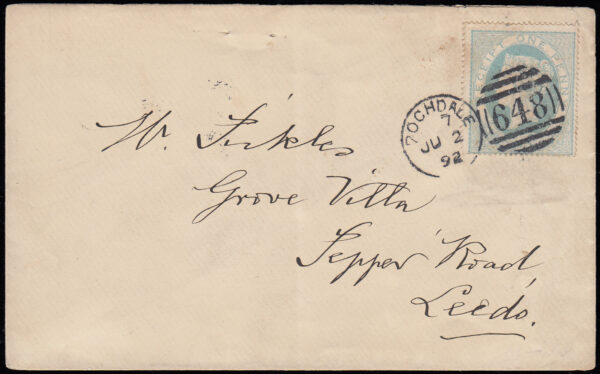 RECEIPT ONE PENNY
ROCHDALE
7
JU 2
92
648
Grove Villa
Pepper Road,
Leeds.